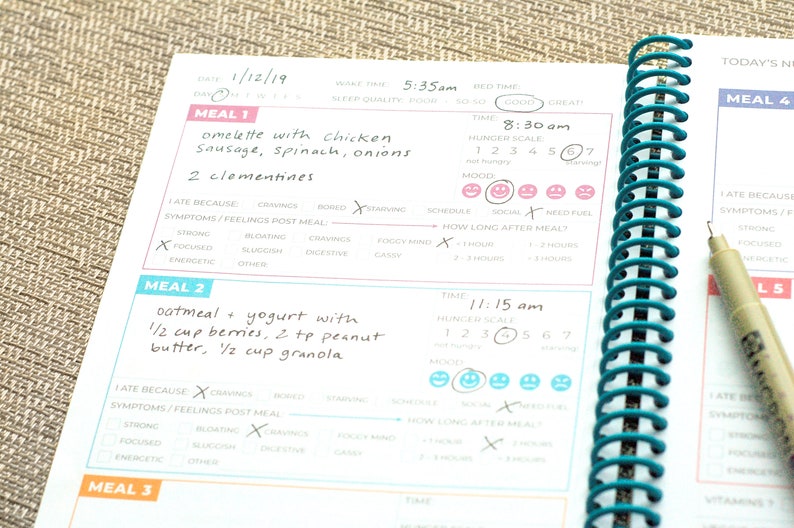 DATE: 1/12/19 WAKE TIME: 5:35am BED TIME:
DAY: M T W T F S SLEEP QUALITY: POOR - SO-SO - GOOD - GREAT!
MEAL 1
TIME: 8:30am
omelette with chicken
sausage, spinach, onions
2 clementines
HUNGER SCALE:
1 2 3 4 5 6 7
not hungry starving!
MOOD:
I ATE BECAUSE: CRAVINGS BORED STARVING SCHEDULE SOCIAL NEED FUEL
SYMPTOMS / FEELINGS POST MEAL: HOW LONG AFTER MEAL?
STRONG BLOATING CRAVINGS FOGGY MIND < 1 HOUR 1 - 2 HOURS
FOCUSED SLUGGISH DIGESTIVE GASSY 2 - 3 HOURS + 3 HOURS
ENERGETIC OTHER:
MEAL 2
TIME: 11:15 am
oatmeal + yogurt with
1/2 cup berries, 2 tp peanut
butter, 1/2 cup granola
HUNGER SCALE
1 2 3 4 5 6 7
not hungry starving!
MOOD:
I ATE BECAUSE: CRAVINGS BORED STARVING SCHEDULE SOCIAL NEED FUEL
SYMPTOMS / FEELINGS POST MEAL: HOW LONG AFTER MEAL?
STRONG BLOATING CRAVINGS FOGGY MIND < 1 HOUR 2 HOURS
FOCUSED SLUGGISH DIGESTIVE GASSY 2 - 3 HOURS + 3 HOURS
ENERGETIC OTHER:
MEAL 3
TIME:
TODAY'S
MEAL 4
I ATE BECAUSE:
SYMPTOMS / FEELINGS
STRONG
FOCUSED
ENERGETIC
5
I ATE BECAUSE:
SYMPTOMS
STRONG
FOCUSED
ENERGETIC
VITAMINS ?